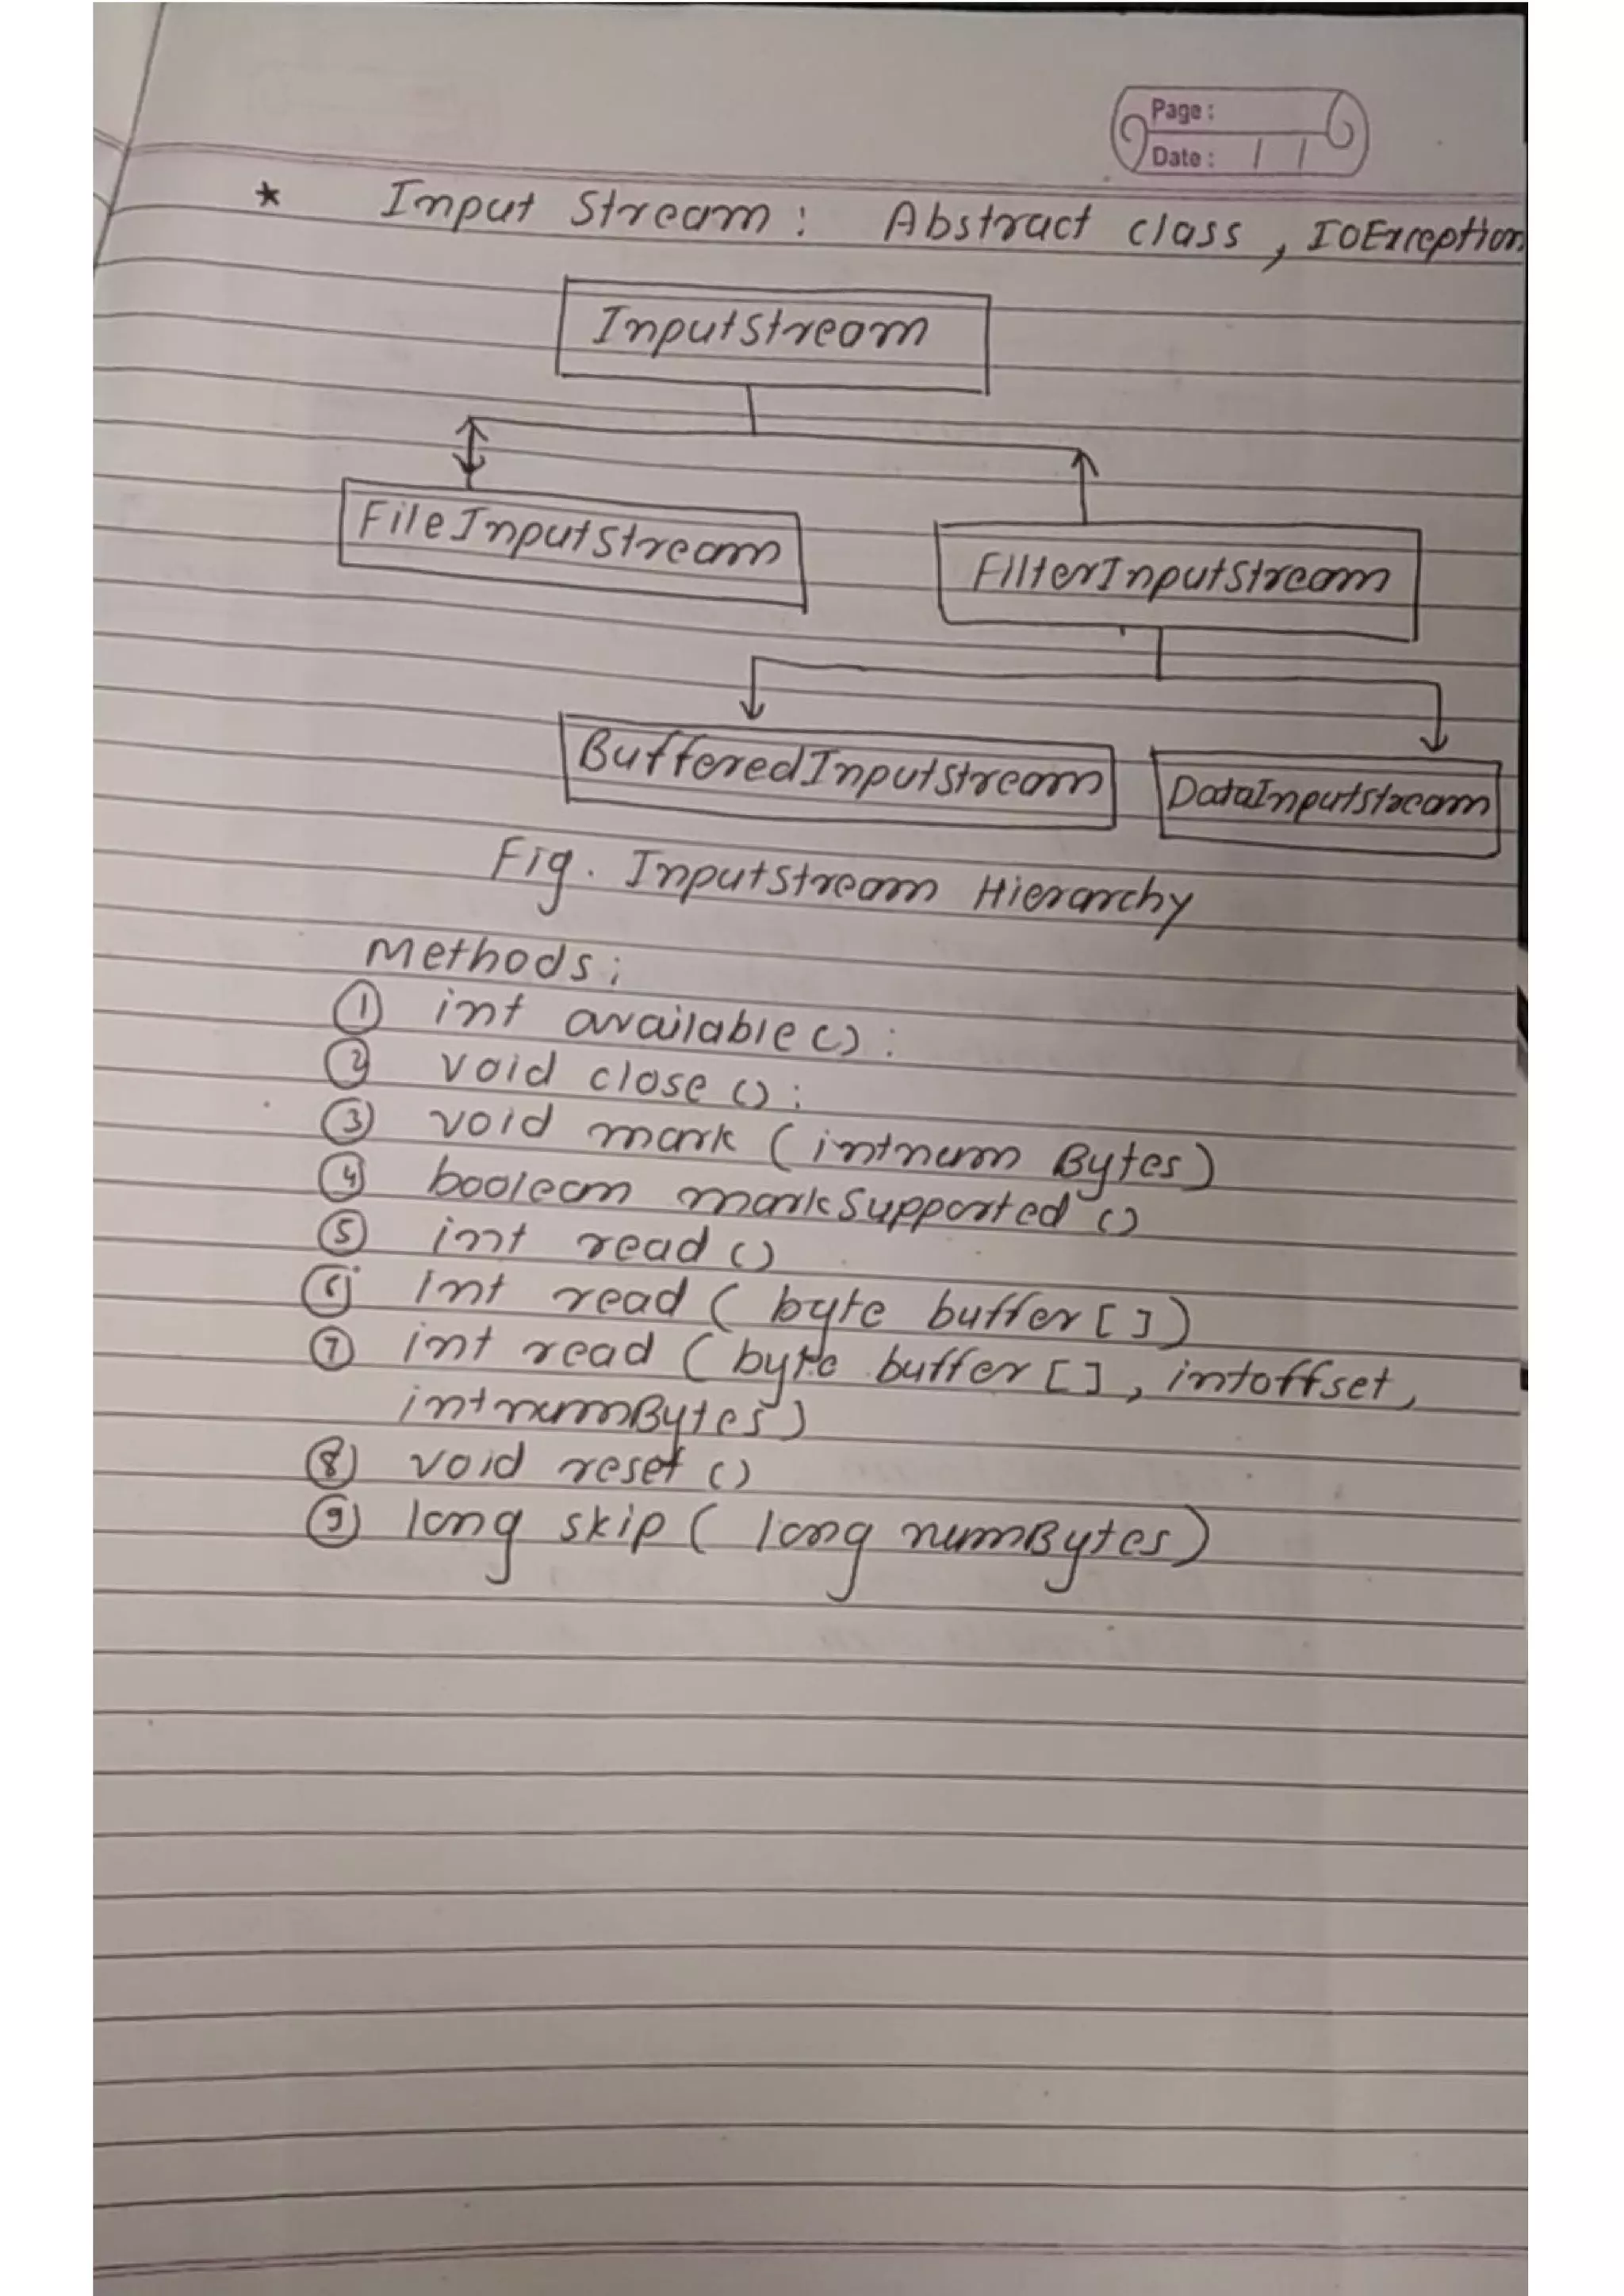 Page :
Date : / /
* Input Stream : Abstract class , IOException
InputStream
FileInputStream
FilterInputStream
BufferedInputStream
DataInputStream
Fig. InputStream Hierarchy
Methods :
① int available() :
② void close () :
③ void mark ( intnum Bytes )
④ boolean markSupported ()
⑤ int read ()
⑥ int read ( byte buffer [ ] )
⑦ int read ( byte buffer [ ] , intoffset ,
intnumBytes )
⑧ void reset ()
⑨ long skip ( long numBytes )